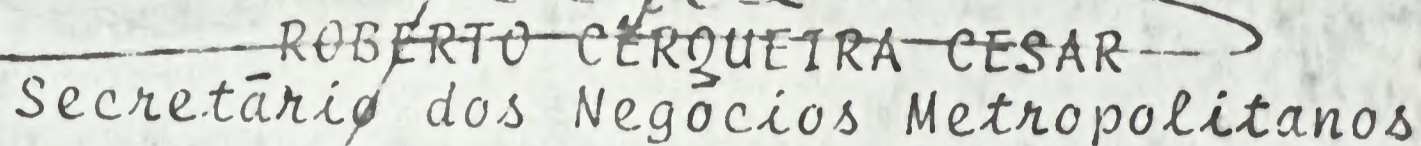 ROBERTO CERQUEIRA CESAR
Secretārio dos Negōcios Metropolitanos